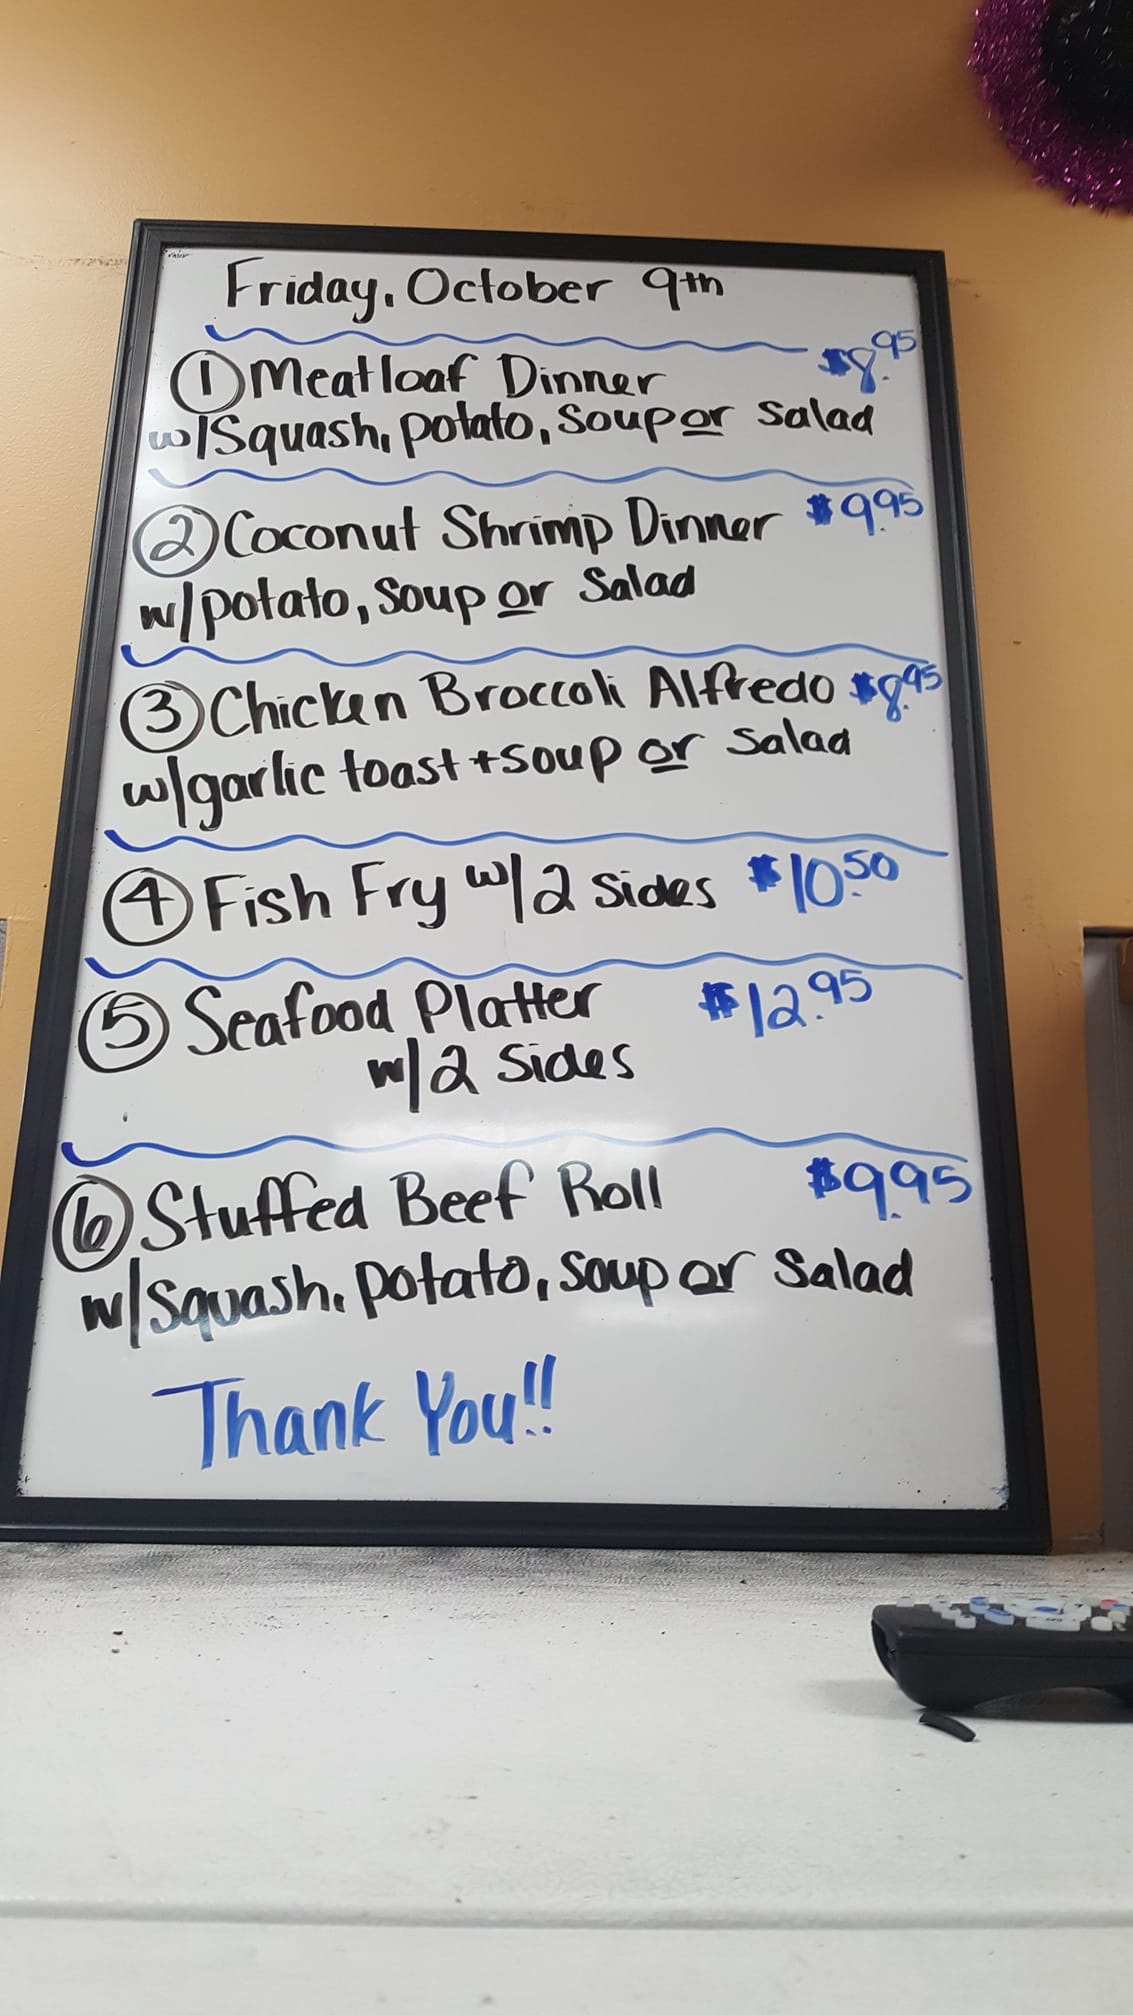 Friday, October 9th
① Meatloaf Dinner $8.95
w/Squash, potato, Soup or Salad
② Coconut Shrimp Dinner $9.95
w/potato, Soup or Salad
③ Chicken Broccoli Alfredo $8.95
w/garlic toast + soup or Salad
④ Fish Fry w/2 Sides $10.50
⑤ Seafood Platter $12.95
w/2 Sides
⑥ Stuffed Beef Roll $9.95
w/Squash, potato, Soup or Salad
Thank You!!